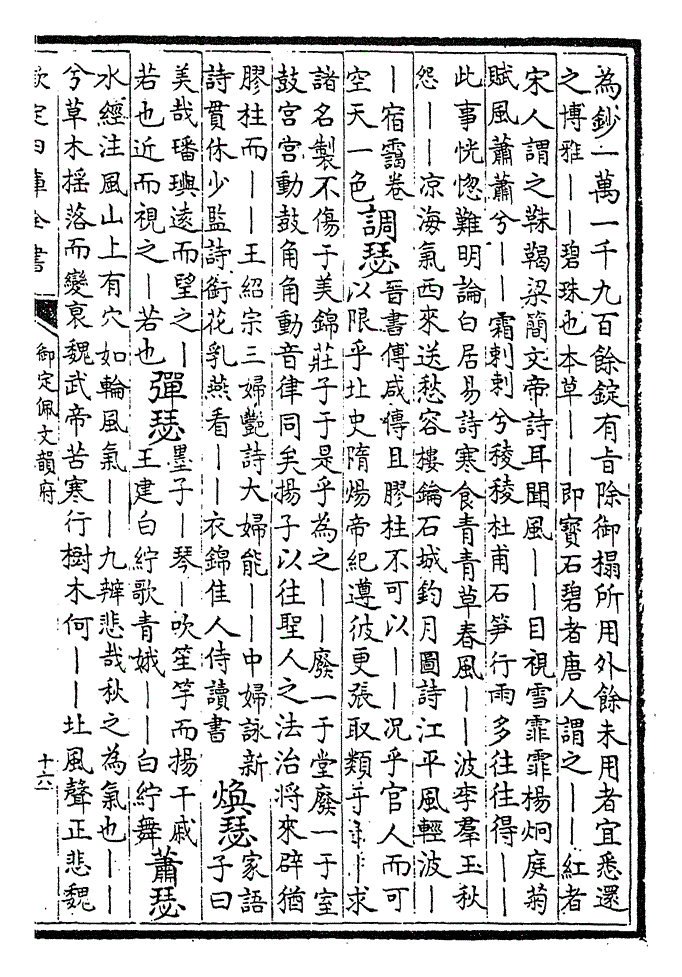 為鈔一萬一千九百餘錠有旨除御榻所用外餘未用者宜悉還
之博雅——碧珠也本草——即寶石碧者唐人謂之——紅者
宋人謂之靺鞨梁簡文帝詩耳聞風——目視雪霏霏楊炯庭菊
賦風蕭蕭兮——霜剌剌兮稜稜杜甫石笋行雨多往往得——
此事恍惚難明論白居易詩寒食青青草春風——波李羣玉秋
怨——凉海氣西來送愁容樓鑰石城釣月圖詩江平風輕波—
—宿靄卷
空天一色
調瑟
晉書傅咸傳且膠柱不可以——况乎官人而可
以限乎北史隋煬帝紀遵彼更張取類于——求
諸名製不傷于美錦莊子于是乎為之——廢一于堂廢一于室
鼓宮宮動鼓角角動音律同矣揚子以往聖人之法治將來辟猶
膠柱而——王紹宗三婦艷詩大婦能——中婦詠新
詩貫休少監詩銜花乳燕看——衣錦佳人侍讀書
煥瑟
家語
子曰
美哉璠璵遠而望之—
若也近而視之—若也
彈瑟
墨子—琴—吹笙竽而揚干戚
王建白紵歌青娥——白紵舞
蕭瑟
水經注風山上有穴如輪風氣——九辯悲哉秋之為氣也——
兮草木揺落而變衰魏武帝苦寒行樹木何——北風聲正悲魏
欽定四庫全書
御定佩文韻府
十六